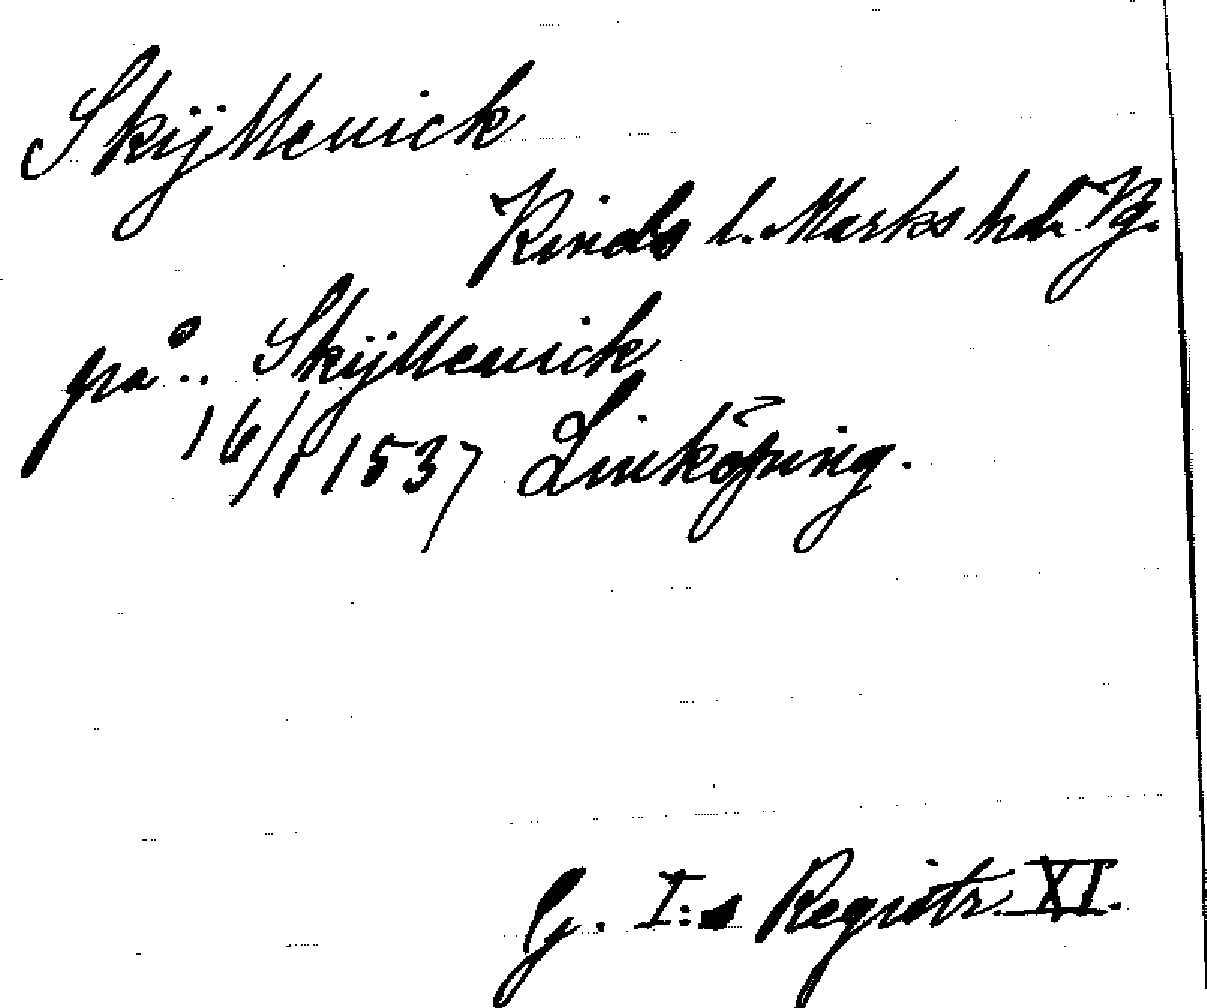 Skÿttenick
Kinds l. Marks hd. Vg.
på.. Skÿttenick
16/1 1537 Linköping.
G. I:s Registr. XI.